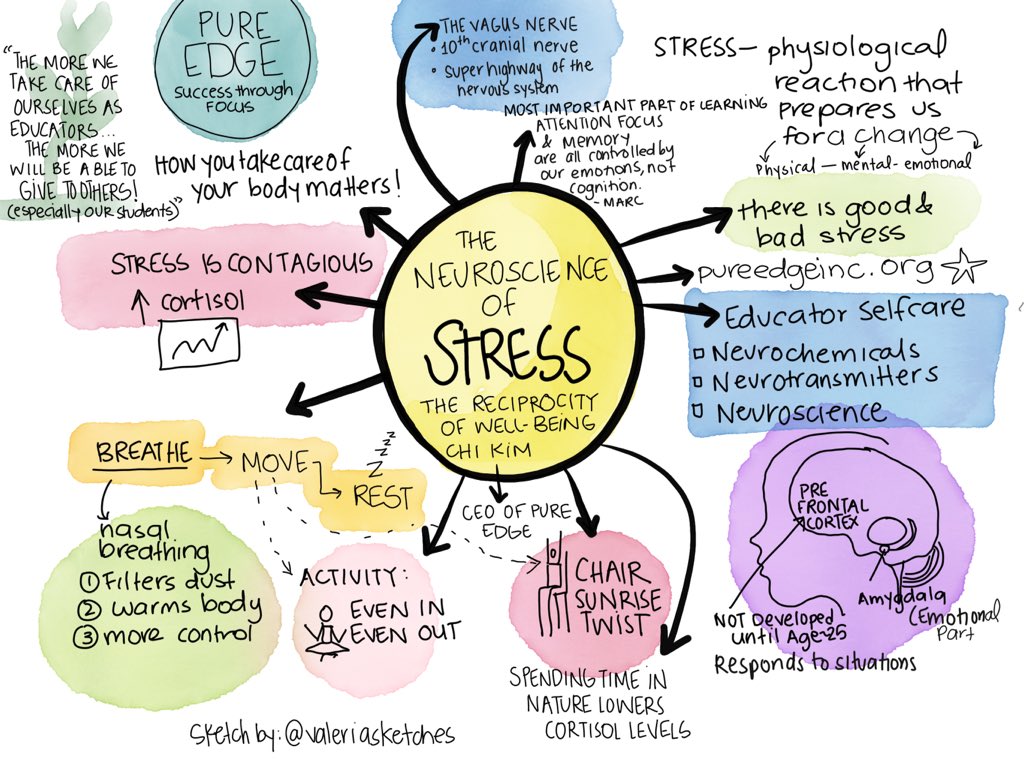 "THE MORE WE
TAKE CARE OF
OURSELVES AS
EDUCATORS...
THE MORE WE
WILL BE ABLE TO
GIVE TO OTHERS!
(especially our students)"
PURE
EDGE
SUCCESS through
FOCUS
THE VAGUS NERVE
• 10th cranial nerve
• super highway of the
nervous system
STRESS - physiological
reaction that
prepares us
for a change
Physical - mental - emotional
MOST IMPORTANT PART OF LEARNING
ATTENTION FOCUS
& MEMORY
are all controlled by
our emotions, not
cognition.
- MARC
How you take care of
your body matters!
there is good &
bad stress
STRESS IS CONTAGIOUS
↑ cortisol
pureedgeinc.org
THE
NEUROSCIENCE
OF
STRESS
THE RECIPROCITY
OF WELL-BEING
CHI KIM
Educator Selfcare
Neurochemicals
Neurotransmitters
Neuroscience
BREATHE → MOVE
REST
zzzz
CEO OF PURE
EDGE
nasal
breathing
① Filters dust
② warms body
③ more control
ACTIVITY:
EVEN IN
EVEN OUT
CHAIR
SUNRISE
TWIST
PRE
FRONTAL
CORTEX
NOT Developed
until Age~25
Responds to situations
Amygdala
(Emotional
Part
SPENDING TIME IN
NATURE LOWERS
CORTISOL LEVELS
Sketch by: @valeriasketches